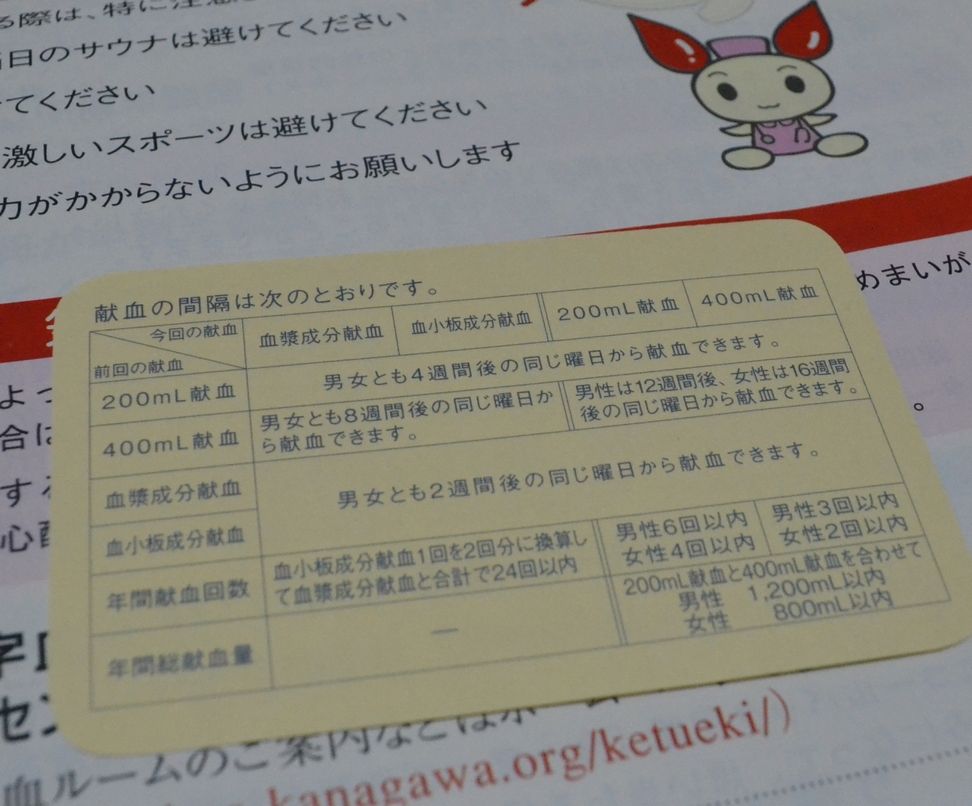 る際は、特に注意
当日のサウナは避けてください
てください
激しいスポーツは避けてください
力がかからないようにお願いします
めまいが
献血の間隔は次のとおりです。
今回の献血
前回の献血
血漿成分献血
血小板成分献血
200mL献血
400mL献血
200mL献血
男女とも4週間後の同じ曜日から献血できます。
400mL献血
男女とも8週間後の同じ曜日か
ら献血できます。
男性は12週間後、女性は16週間
後の同じ曜日から献血できます。
血漿成分献血
血小板成分献血
男女とも2週間後の同じ曜日から献血できます。
年間献血回数
血小板成分献血1回を2回分に換算し
て血漿成分献血と合計で24回以内
男性6回以内
女性4回以内
男性3回以内
女性2回以内
年間総献血量
—
200mL献血と400mL献血を合わせて
男性 1,200mL以内
女性 800mL以内
よっ
合は
する
心配
。
セン
血ルームのご案内などはホーム
kanagawa.org/ketueki/)